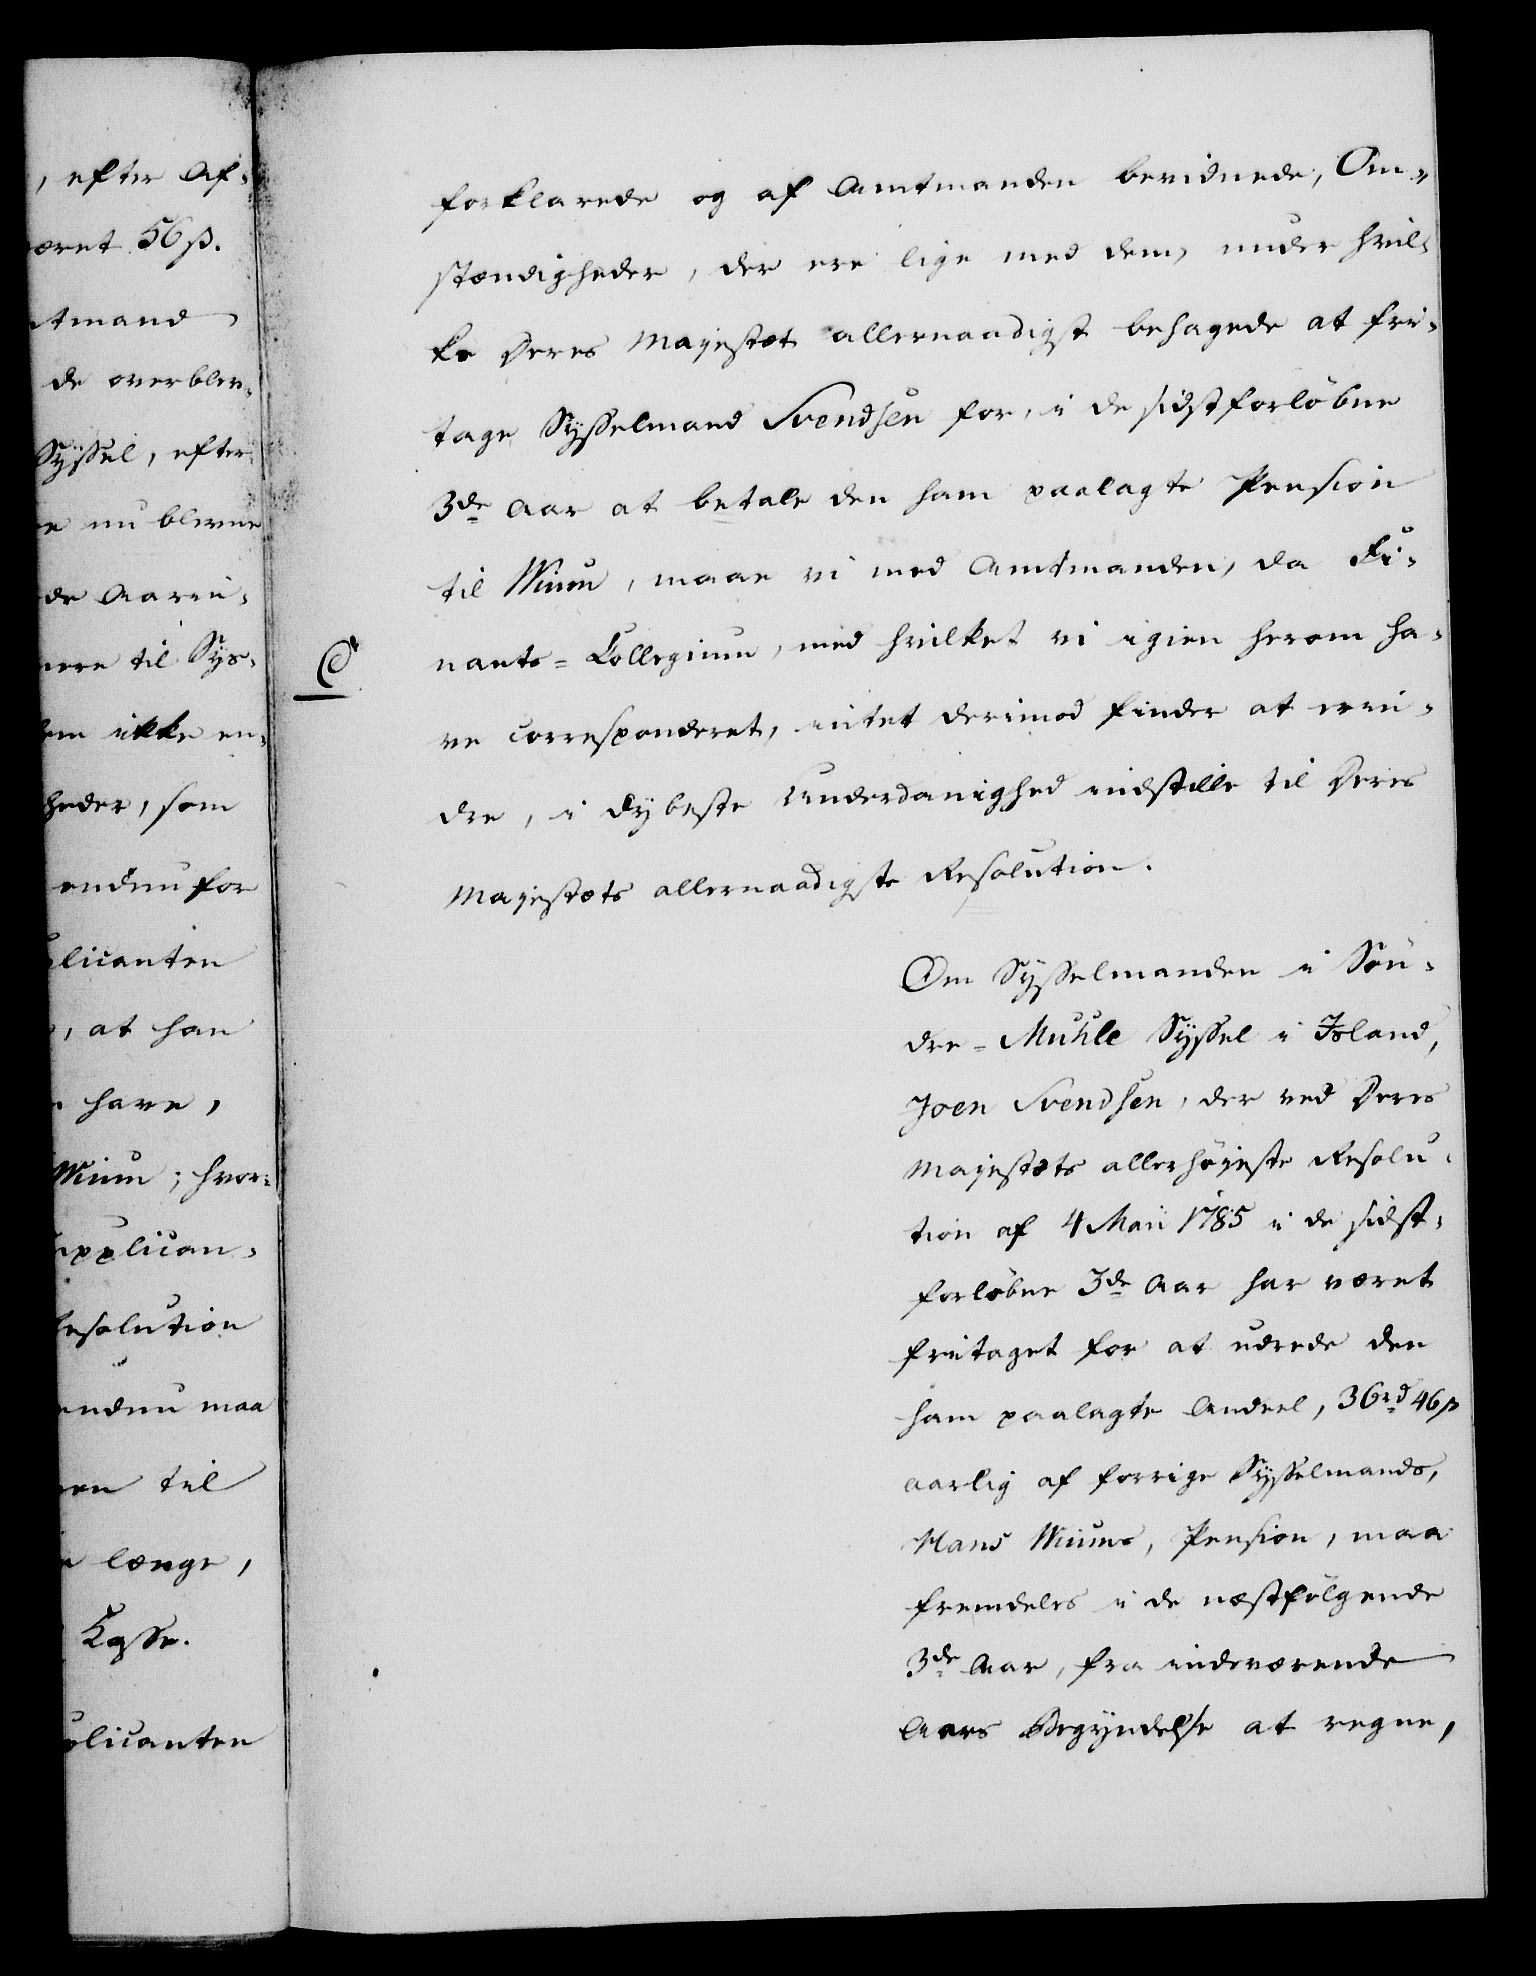 , efter Af-
været 56 ß.
tmand
de overblev-
Syssel, efter-
nu blevne
de Aarin-
til Sys-
ikke en-
heder, som
endnu for
plicanten
, at han
have,
Wium; hvor-
upplican-
Resolution
endnu maa
til
længe,
Casse.
plicanten
forklarede og af Amtmanden bevidnede, Om-
stændigheder, der ere lige med dem, under hvil-
ke Deres Majestæt allernaadigst behagede at fri-
tage Sysselmand Svendsen for, i de sidstforløbne
3de Aar at betale den ham paalagte Pension
til Wium, maae vi med Amtmanden, da Fi-
nants-Collegium, med hvilket vi igien herom ha-
C
ve corresponderet, intet derimod finder at erin-
dre, i dybeste Underdanighed indstille til Deres
Majestæts allernaadigste Resolution.
Om Sysselmanden i Søn-
dre-Muhle Syssel i Island,
Joen Svendsen, der ved Deres
Majestæts allerhøjeste Resolu-
tion af 4 Maii 1785 i de sidst-
forløbne 3de Aar har været
fritaget for at udrede den
ham paalagte Andeel, 36 rd 46 ß
aarlig af forrige Sysselmands,
Hans Wiums, Pension, maa
fremdeles i de næstfølgende
3de Aar, fra indeværende
Aars Begyndelse at regne,